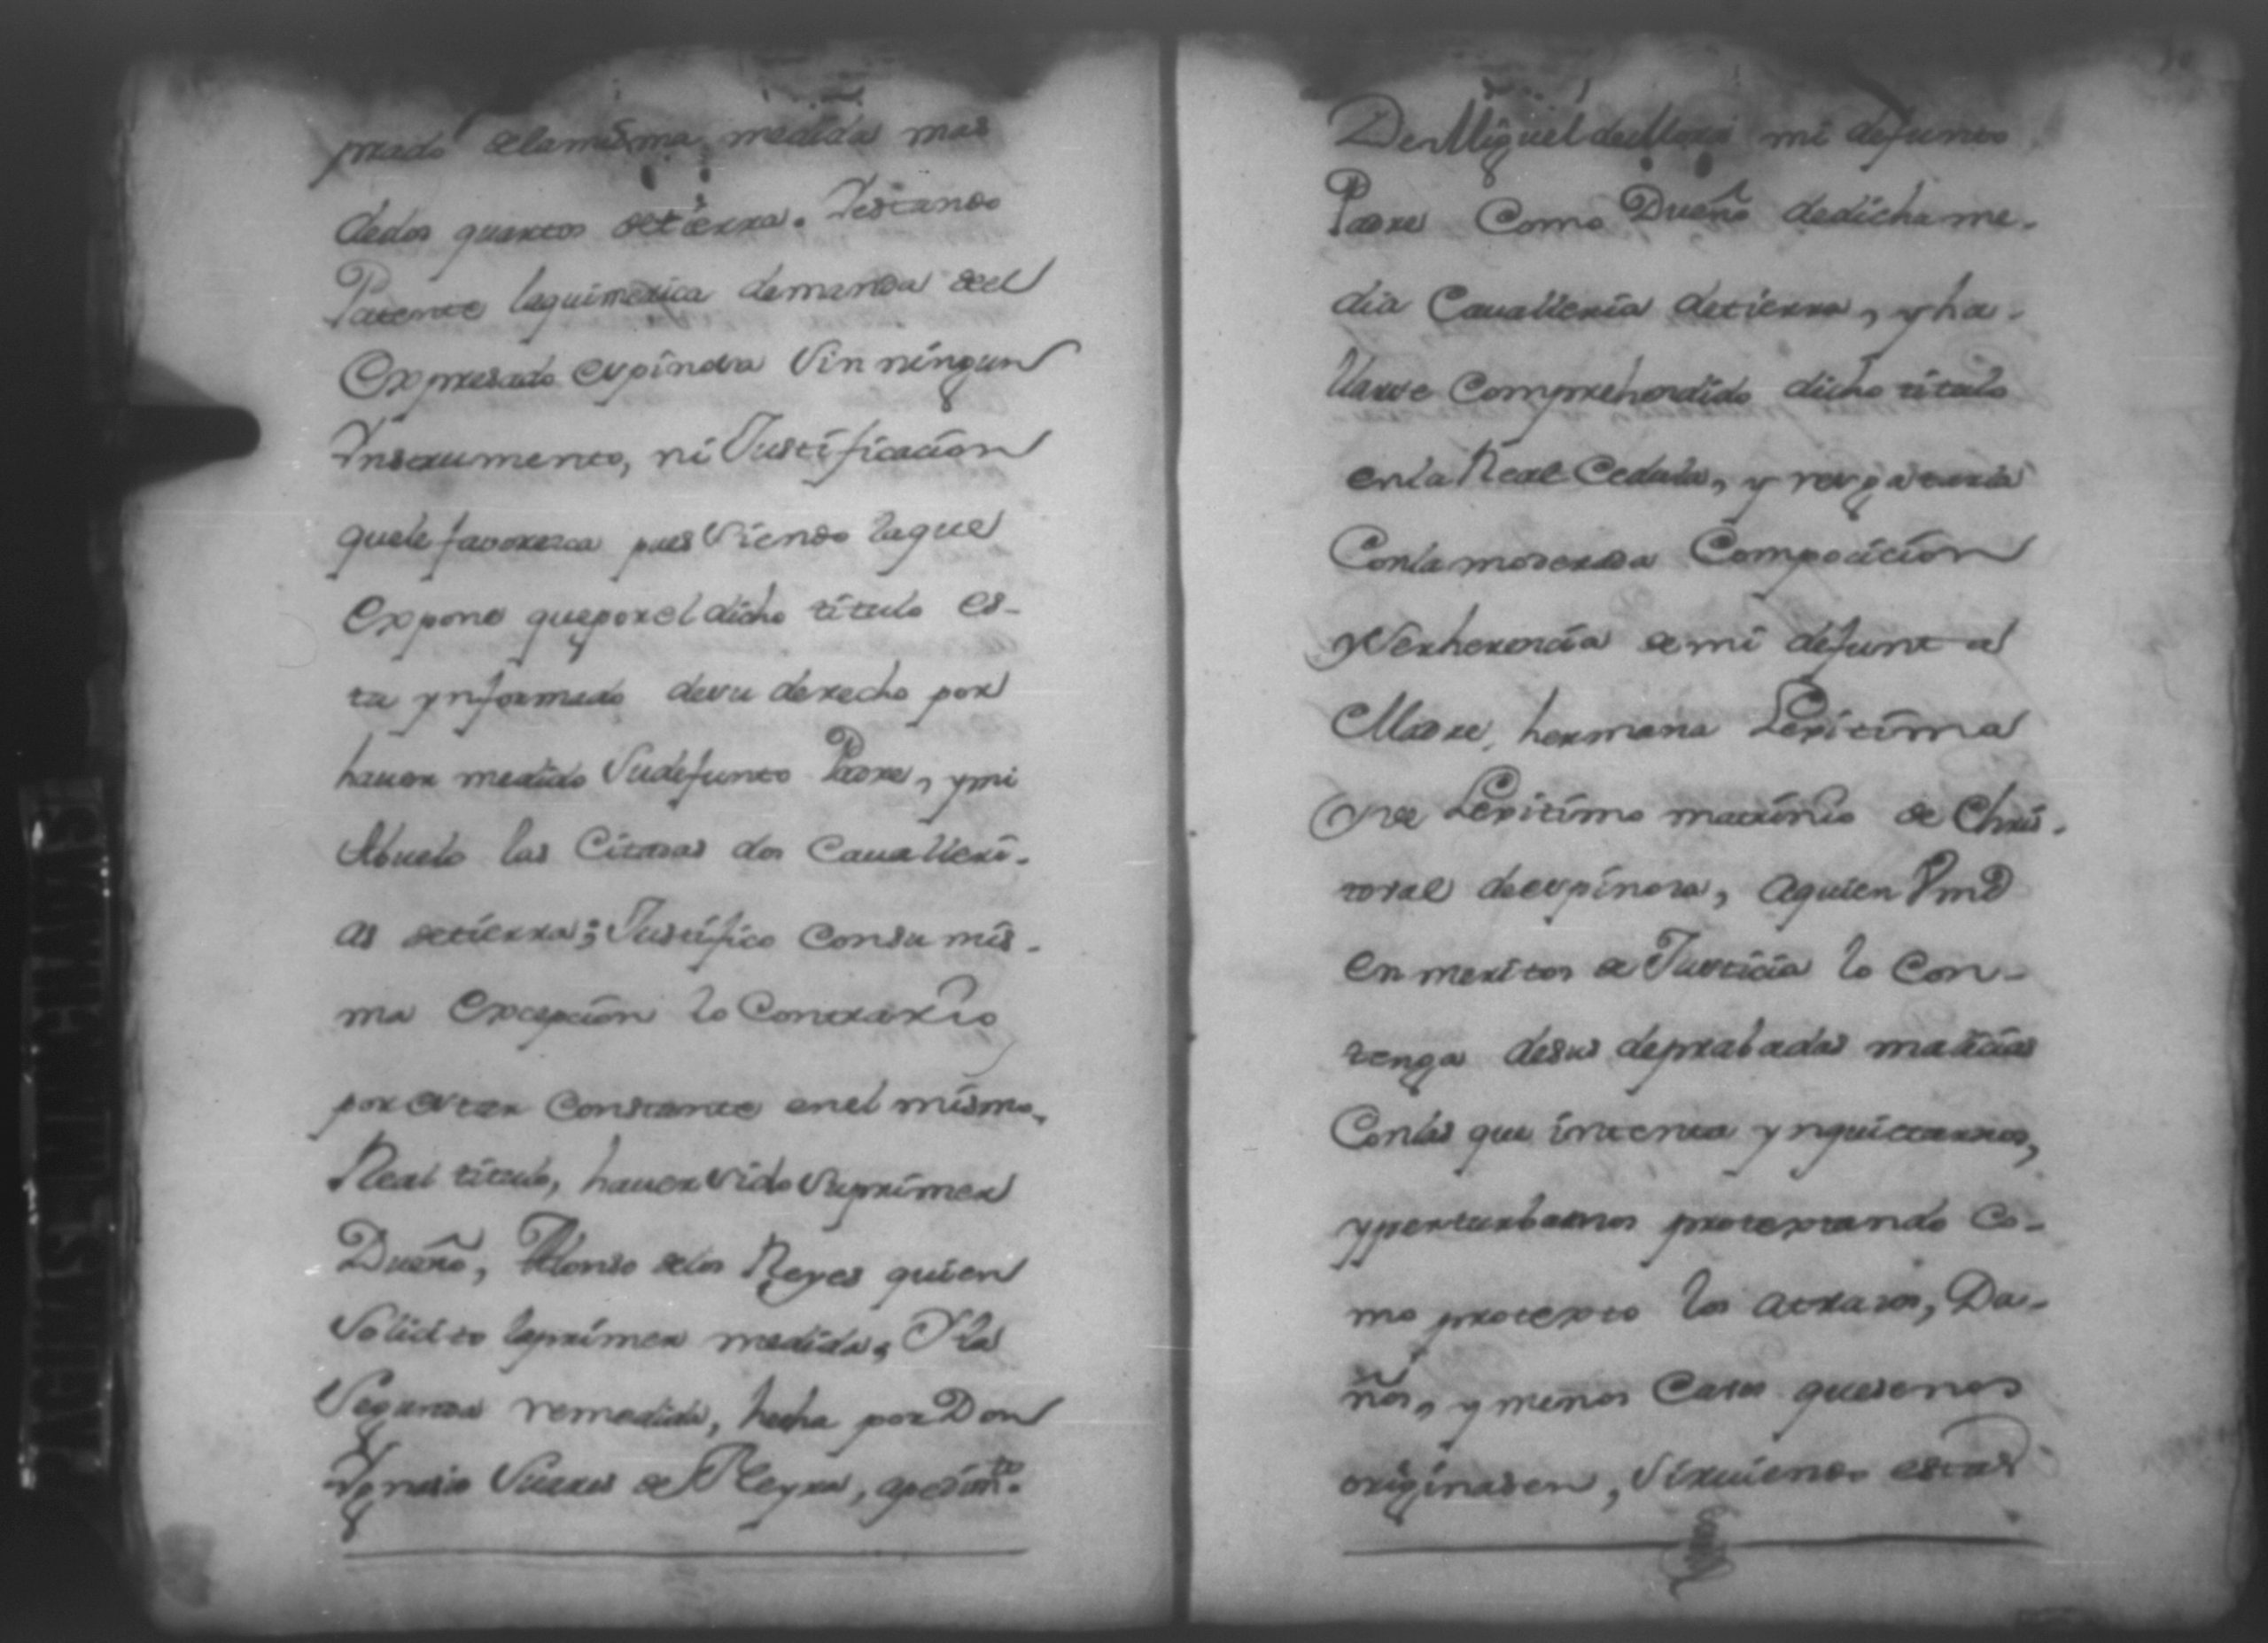 prado de la misma medida mas
de dos quartos de tierra. Y estando
Patente la quimerica demanda de el
Expresado espinosa Sin ningun
Ynstrumento, ni Justificacion
que le favoresca pues Siendo la que
Expone que por el dicho titulo es-
ta ynformado de su derecho por
hauer medido Su defunto Padre, y mi
Abuelo las Citadas dos Caualleri-
as de tierra; Justifico Con su mis-
ma Excepcion lo Contrario
por estar Constante en el mismo
Real titulo, hauer Sido Su primer
Dueño, Alonso de los Reyes quien
Solicito la primer medida, Y la
Segunda remedida, hecha por Don
Ygnasio Suares de Pleyra, a pedim.to
De Miguel de mi defunto
Padre Como Dueño de dicha me-
dia Cavalleria de tierra, y ha-
llarse Comprehendido dicho titulo
en la Real Cedula, y
Con la moderada Composicion
y Ser herencia de mi defunta
Madre, hermana Lexitima
y de Lexitimo matrimonio de Chris-
toval de espinosa, a quien Vmd
en meritos de Justicia lo Con-
tenga de sus deprabadas malicias
Con las que intenta ynquietarnos,
y perturbarnos protextando Co-
mo protexto los atrasos, Da-
ños, y menos Casos que se nos
originasen, Sirviendo estas